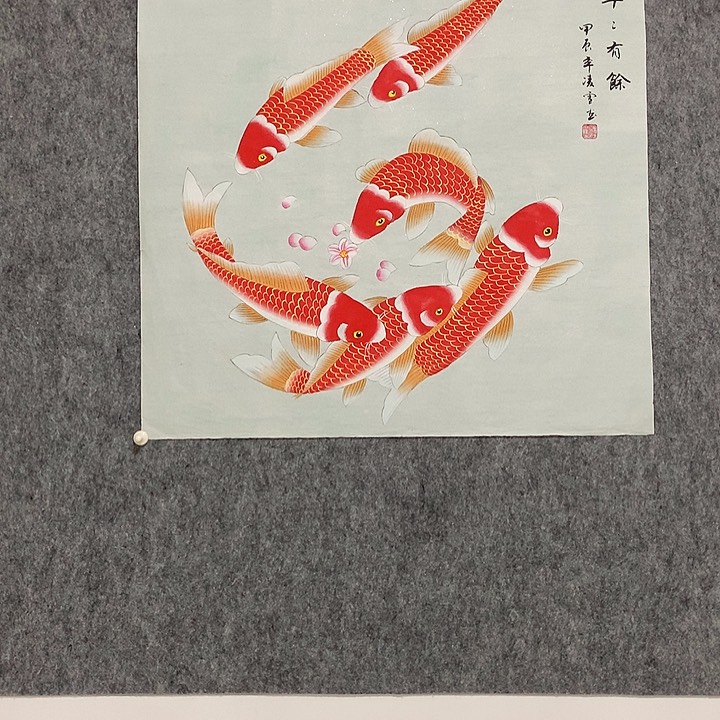 年〻有餘
甲辰年凌雪画